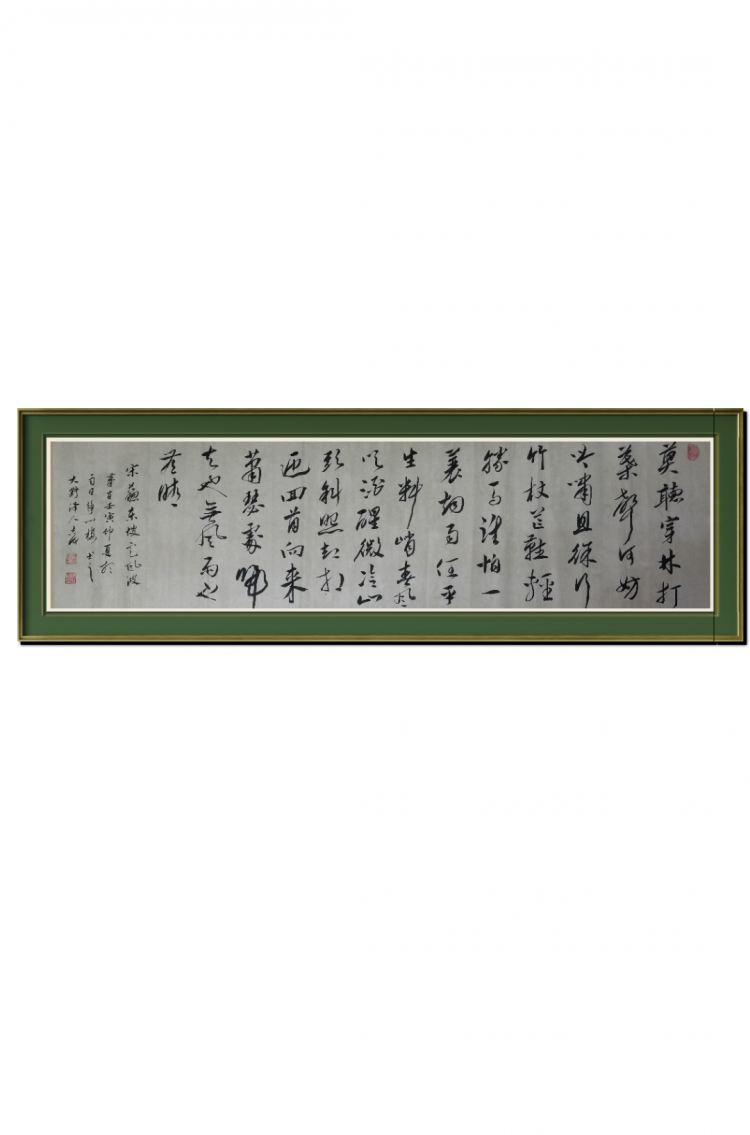 莫聽穿林打
葉聲何妨
吟嘯且徐行
竹杖芒鞋輕
勝馬誰怕一
蓑烟雨任平
生料峭春風
吹酒醒微冷山
頭斜照却相
迎回首向来
蕭瑟處歸
去也無風雨也
無晴
宋蘇東坡定風波
壬寅仲夏於
小樓书之
大野